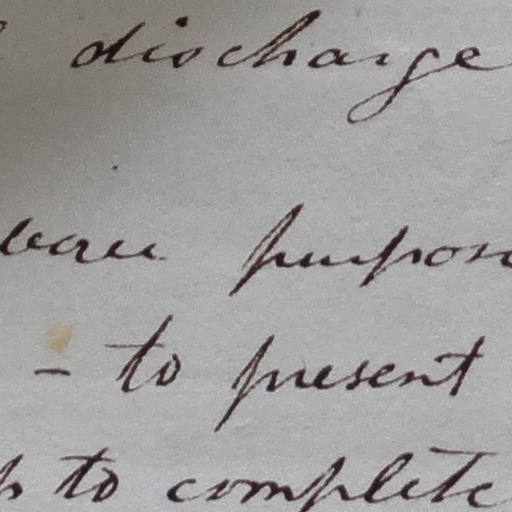 discharge
purpose
- to present
to complete